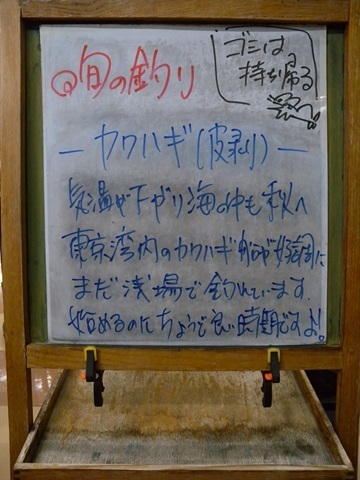 旬の釣り
ゴミは
持ち帰る
— カワハギ(皮剥) —
気温が下がり海の中も秋へ
東京湾内のカワハギ船が好調に
まだ浅場で釣れています.
始めるのにちょうど良い時期ですよ!